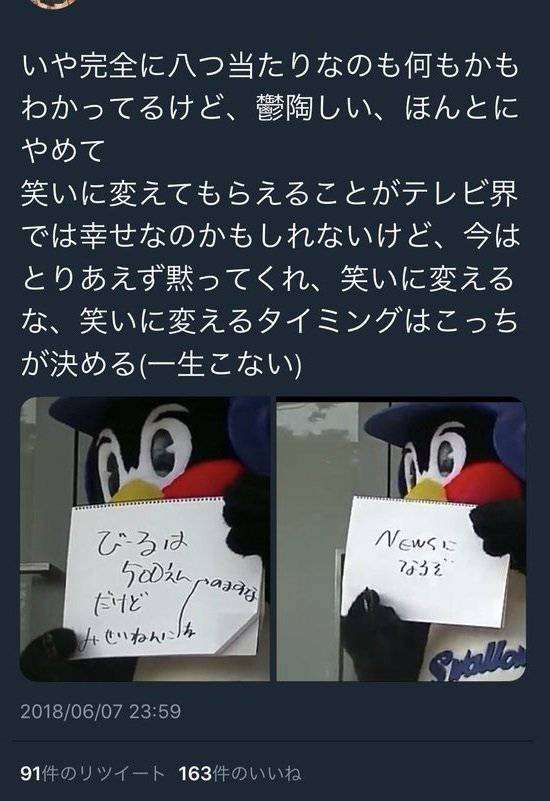 いや完全に八つ当たりなのも何もかも
わかってるけど、鬱陶しい、ほんとに
やめて
笑いに変えてもらえることがテレビ界
では幸せなのかもしれないけど、今は
とりあえず黙ってくれ、笑いに変える
な、笑いに変えるタイミングはこっち
が決める(一生こない)
びーるは
500えん
だけど
みせいねんに
のますな
NEWSに
なるぞ
Swallow
2018/06/07 23:59
91件のリツイート 163件のいいね